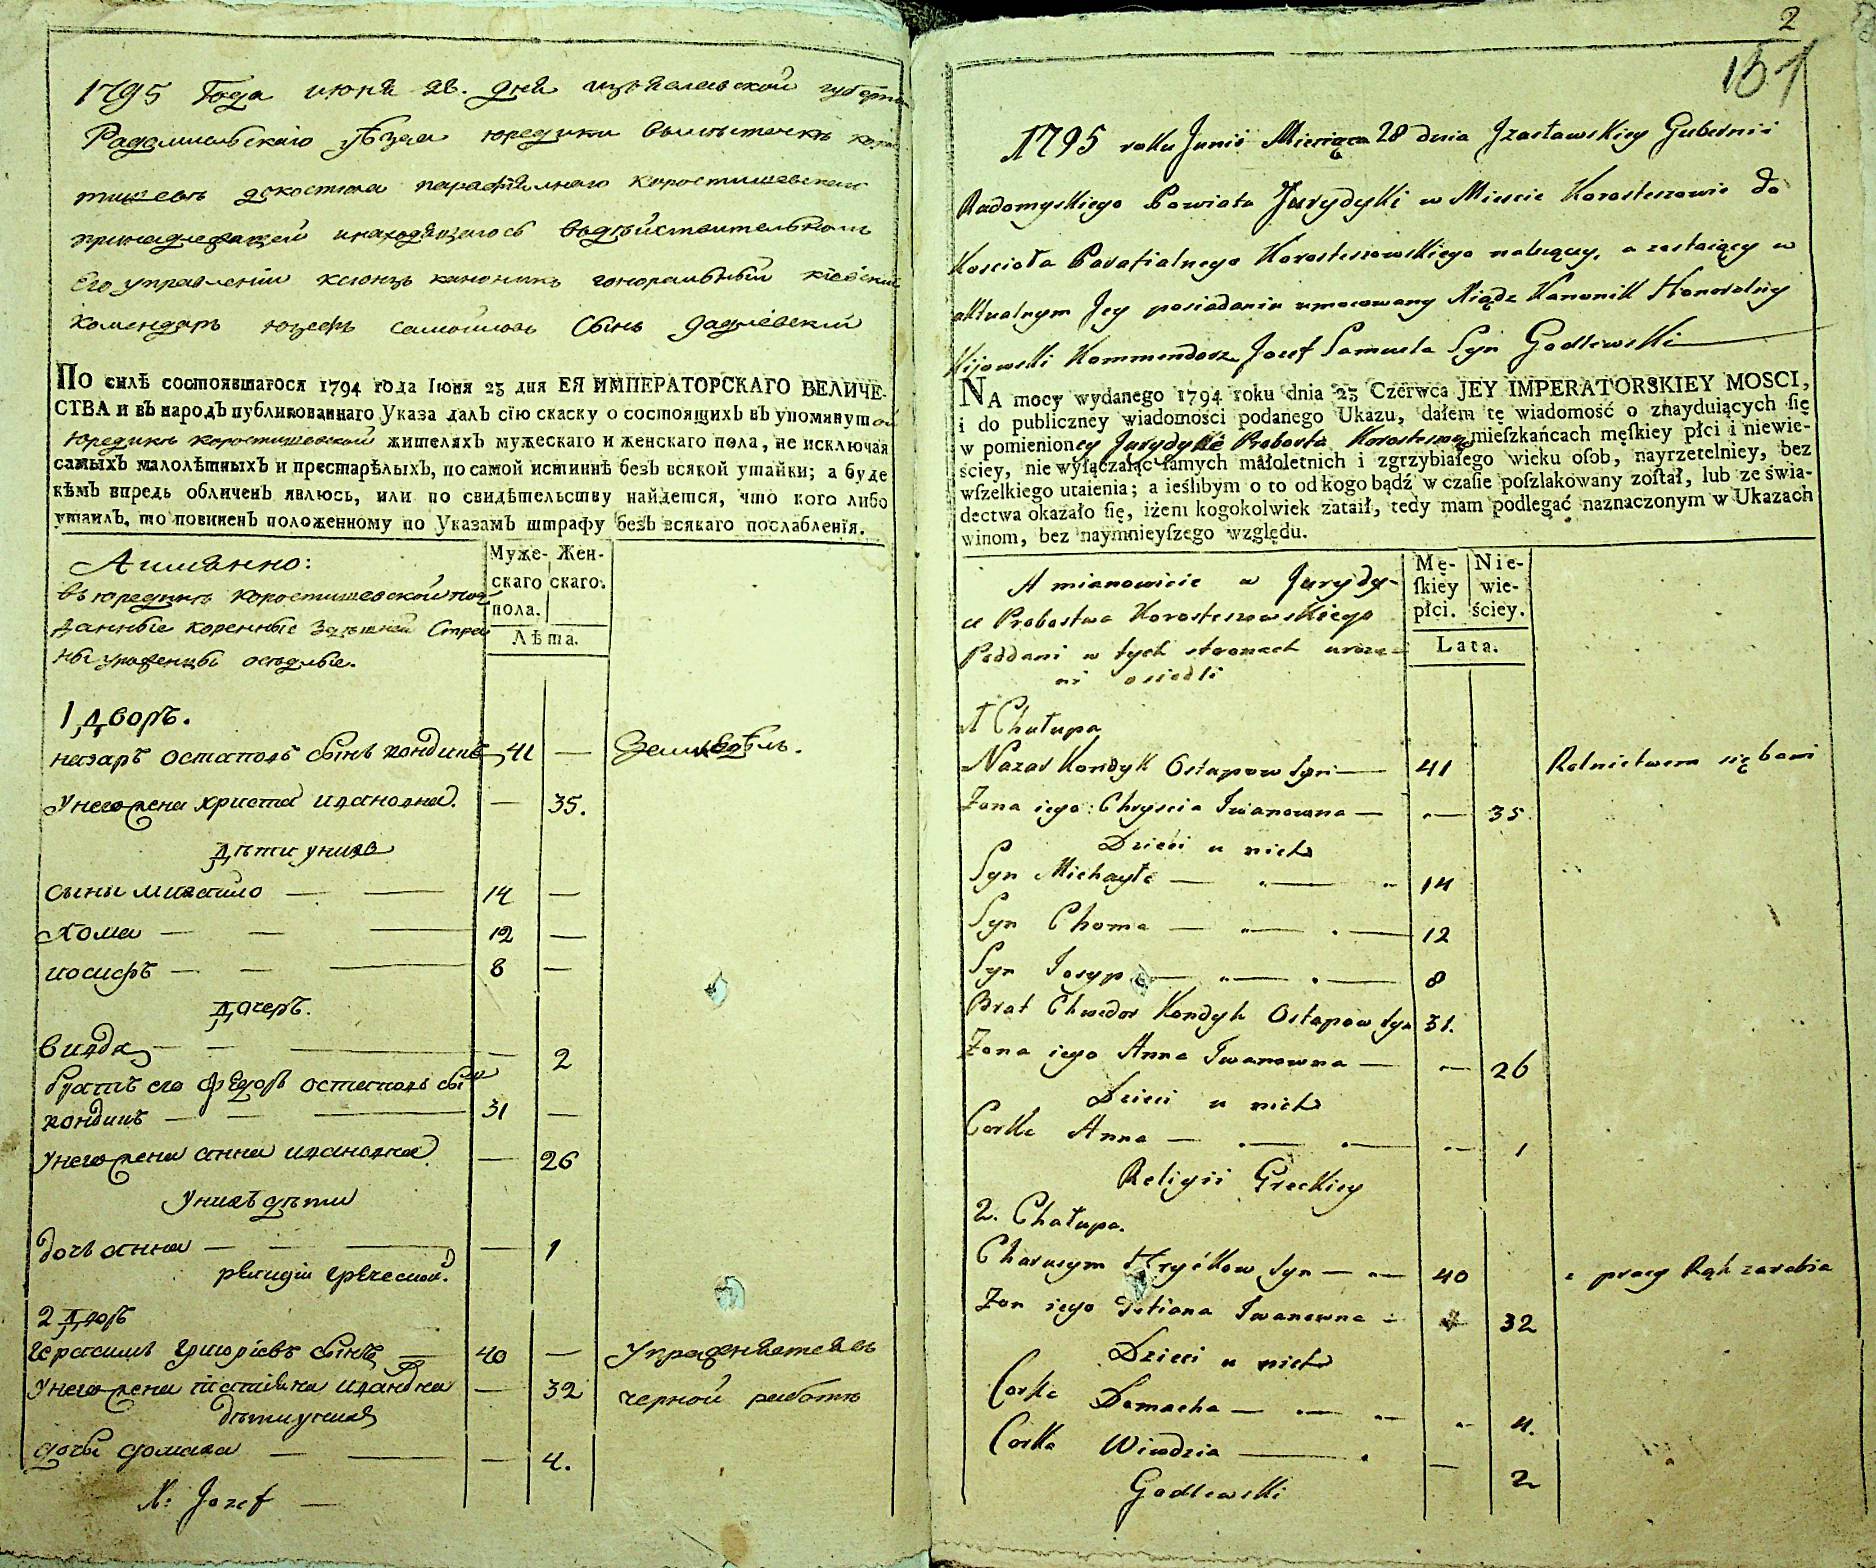 1795 Года июня 28. дня изяславской губерни
Радомысльскаго уѣзда юредики вмѣстечкѣ коро
тишевѣ докостюла парафіялнаго Коростишевскаго
принадлежащей инаходящагося вдѣйствительномъ
его управленіи ксіонзъ каноникъ гоноральный кіевскій
комендаръ юзефъ самойловъ Сынъ Годлевскій
По силѣ состоявшагося 1794 года Іюня 23 дня ЕЯ ИМПЕРАТОРСКАГО ВЕЛИЧЕ-
СТВА и въ народъ публикованнаго Указа далъ сію скаску о состоящихъ въ упоминутой
юредикѣ коростишевской жителяхъ мужескаго и женскаго пола, не исключая
самыхъ малолѣтныхъ и престарѣлыхъ, по самой истиннѣ безъ всякой утайки; а буде
кѣмъ впредь обличенъ явлюсь, или по свидѣтельству найдется, что кого либо
утаилъ, то повиненъ положенному по Указамъ штрафу безъ всякаго послабленія.
Аимянно:
въюредикѣ коростишевской под
данные коренные Здѣшней Стра
ны уроженцы оседлые.
Муже-скаго пола.
Жен-скаго.
Лѣта.
1, Дворъ.
назаръ остаповъ сынъ кондикъ 41 — Земледѣль.
Унего жена христя ивановна. — 35.
Дѣти унихъ
сыны михайло — — 14 —
хома — — — 12 —
иосифъ — — — 8 —
Дочерь.
вивдя — — — — 2
братъ его Федоръ остаповъ сынъ
кондикъ — — — 31 —
Унего жена анна ивановна — 26
Унихъ дѣти
дочь анна — — — — 1
религіи греческой.
2 Дворъ
герасимъ григоріевъ сынъ — 40 — Упражняется въ
Унего жена татіяна ивановна — 32 черной работѣ
дѣти унихъ
дочь домаха — — — 4.
X: Jozef —
2
151
1795 roku Junii Miesiąca 28 dnia Jzasławskiey Gubernii
Radomyskiego Powiatu Jurydyki w Miescie Korosteszowie do
Koscioła Parafialnego Korosteszowskiego nalezący, a zostaiący w
aktualnym Jey posiadaniu umocowany Xiądz Kanonik Honoralny
Kijowski Kommendarz Jozef Samuela Syn Godlewski
NA mocy wydanego 1794 roku dnia 23 Czerwca JEY IMPERATORSKIEY MOSCI,
i do publiczney wiadomości podanego Ukazu, dałem tę wiadomość o znayduiących ſię
w pomienioney Jurydyce Probostwa Korosteszow mieſzkańcach męſkiey płci i niewie-
ściey, nie wyłączaiąc ſamych małoletnich i zgrzybiałego wieku oſob, nayrzetelniey, bez
wſzelkiego utaienia; a ieślibym o to od kogo bądź w czaſie poſzlakowany zoſtał, lub ze świa-
dectwa okazało ſię, iżem kogokolwiek zataił, tedy mam podlegać naznaczonym w Ukazach
winom, bez naymnieyſzego względu.
A mianowicie w Jurydy-
ce Probostwa Korosteszowskiego
Poddani w tych stronach urodze-
ni osiedli
Mę-ſkiey płci.
Nie-wie-ściey.
Lata.
1 Chałupa
Nazar Kondyk Ostapow syn — 41 Rolnictwem się bawi
Zona iego Chryscia Iwanowna — — 35
Dzieci u nich
Syn Michayło — — 14
Syn Choma — — — 12
Syn Josyp — — — 8
Brat Chwedor Kondyk Ostapow syn 31.
Zona iego Anna Iwanowna — — 26
Dzieci u nich
Corka Anna — — — — 1
Religii Greckiey
2. Chałupa.
Charasym Hryćkow syn — — 40 z pracy Rąk zarabia
Zon iego Tetiana Iwanowna - 32
Dzieci u nich
Corka Domacha — — — - 4.
Corka Wiwdzia — — 2
Godlewski